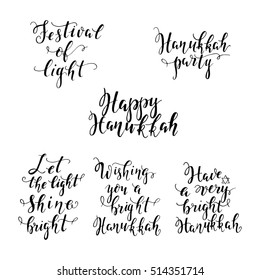 Festival
of
light
Hanukkah
party
Happy
Hanukkah
Let
the light
Shine
bright
Wishing
you a
bright
Hanukkah
Have
a very
bright
Hanukkah
514351714